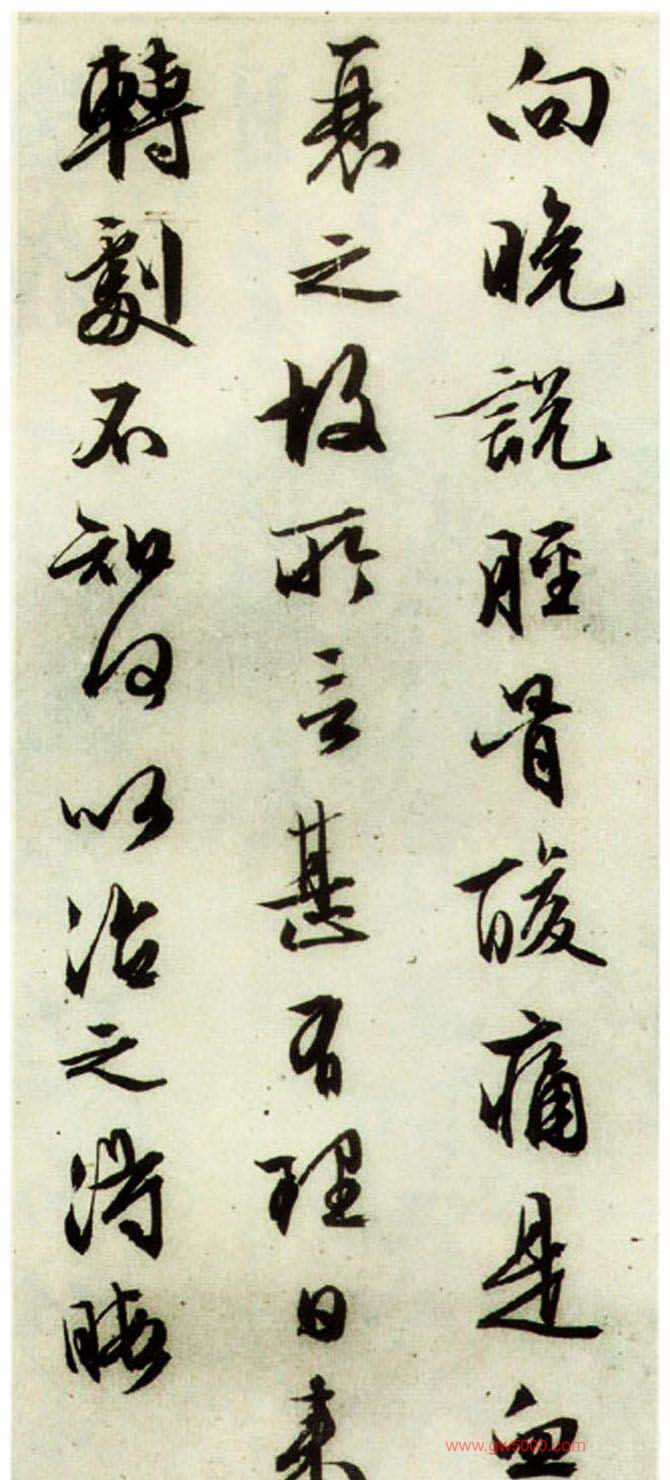 向晚說脛骨酸痛是血
衰之故所言甚有理日来
轉劇不知何以治之得晤
www.gws000.com